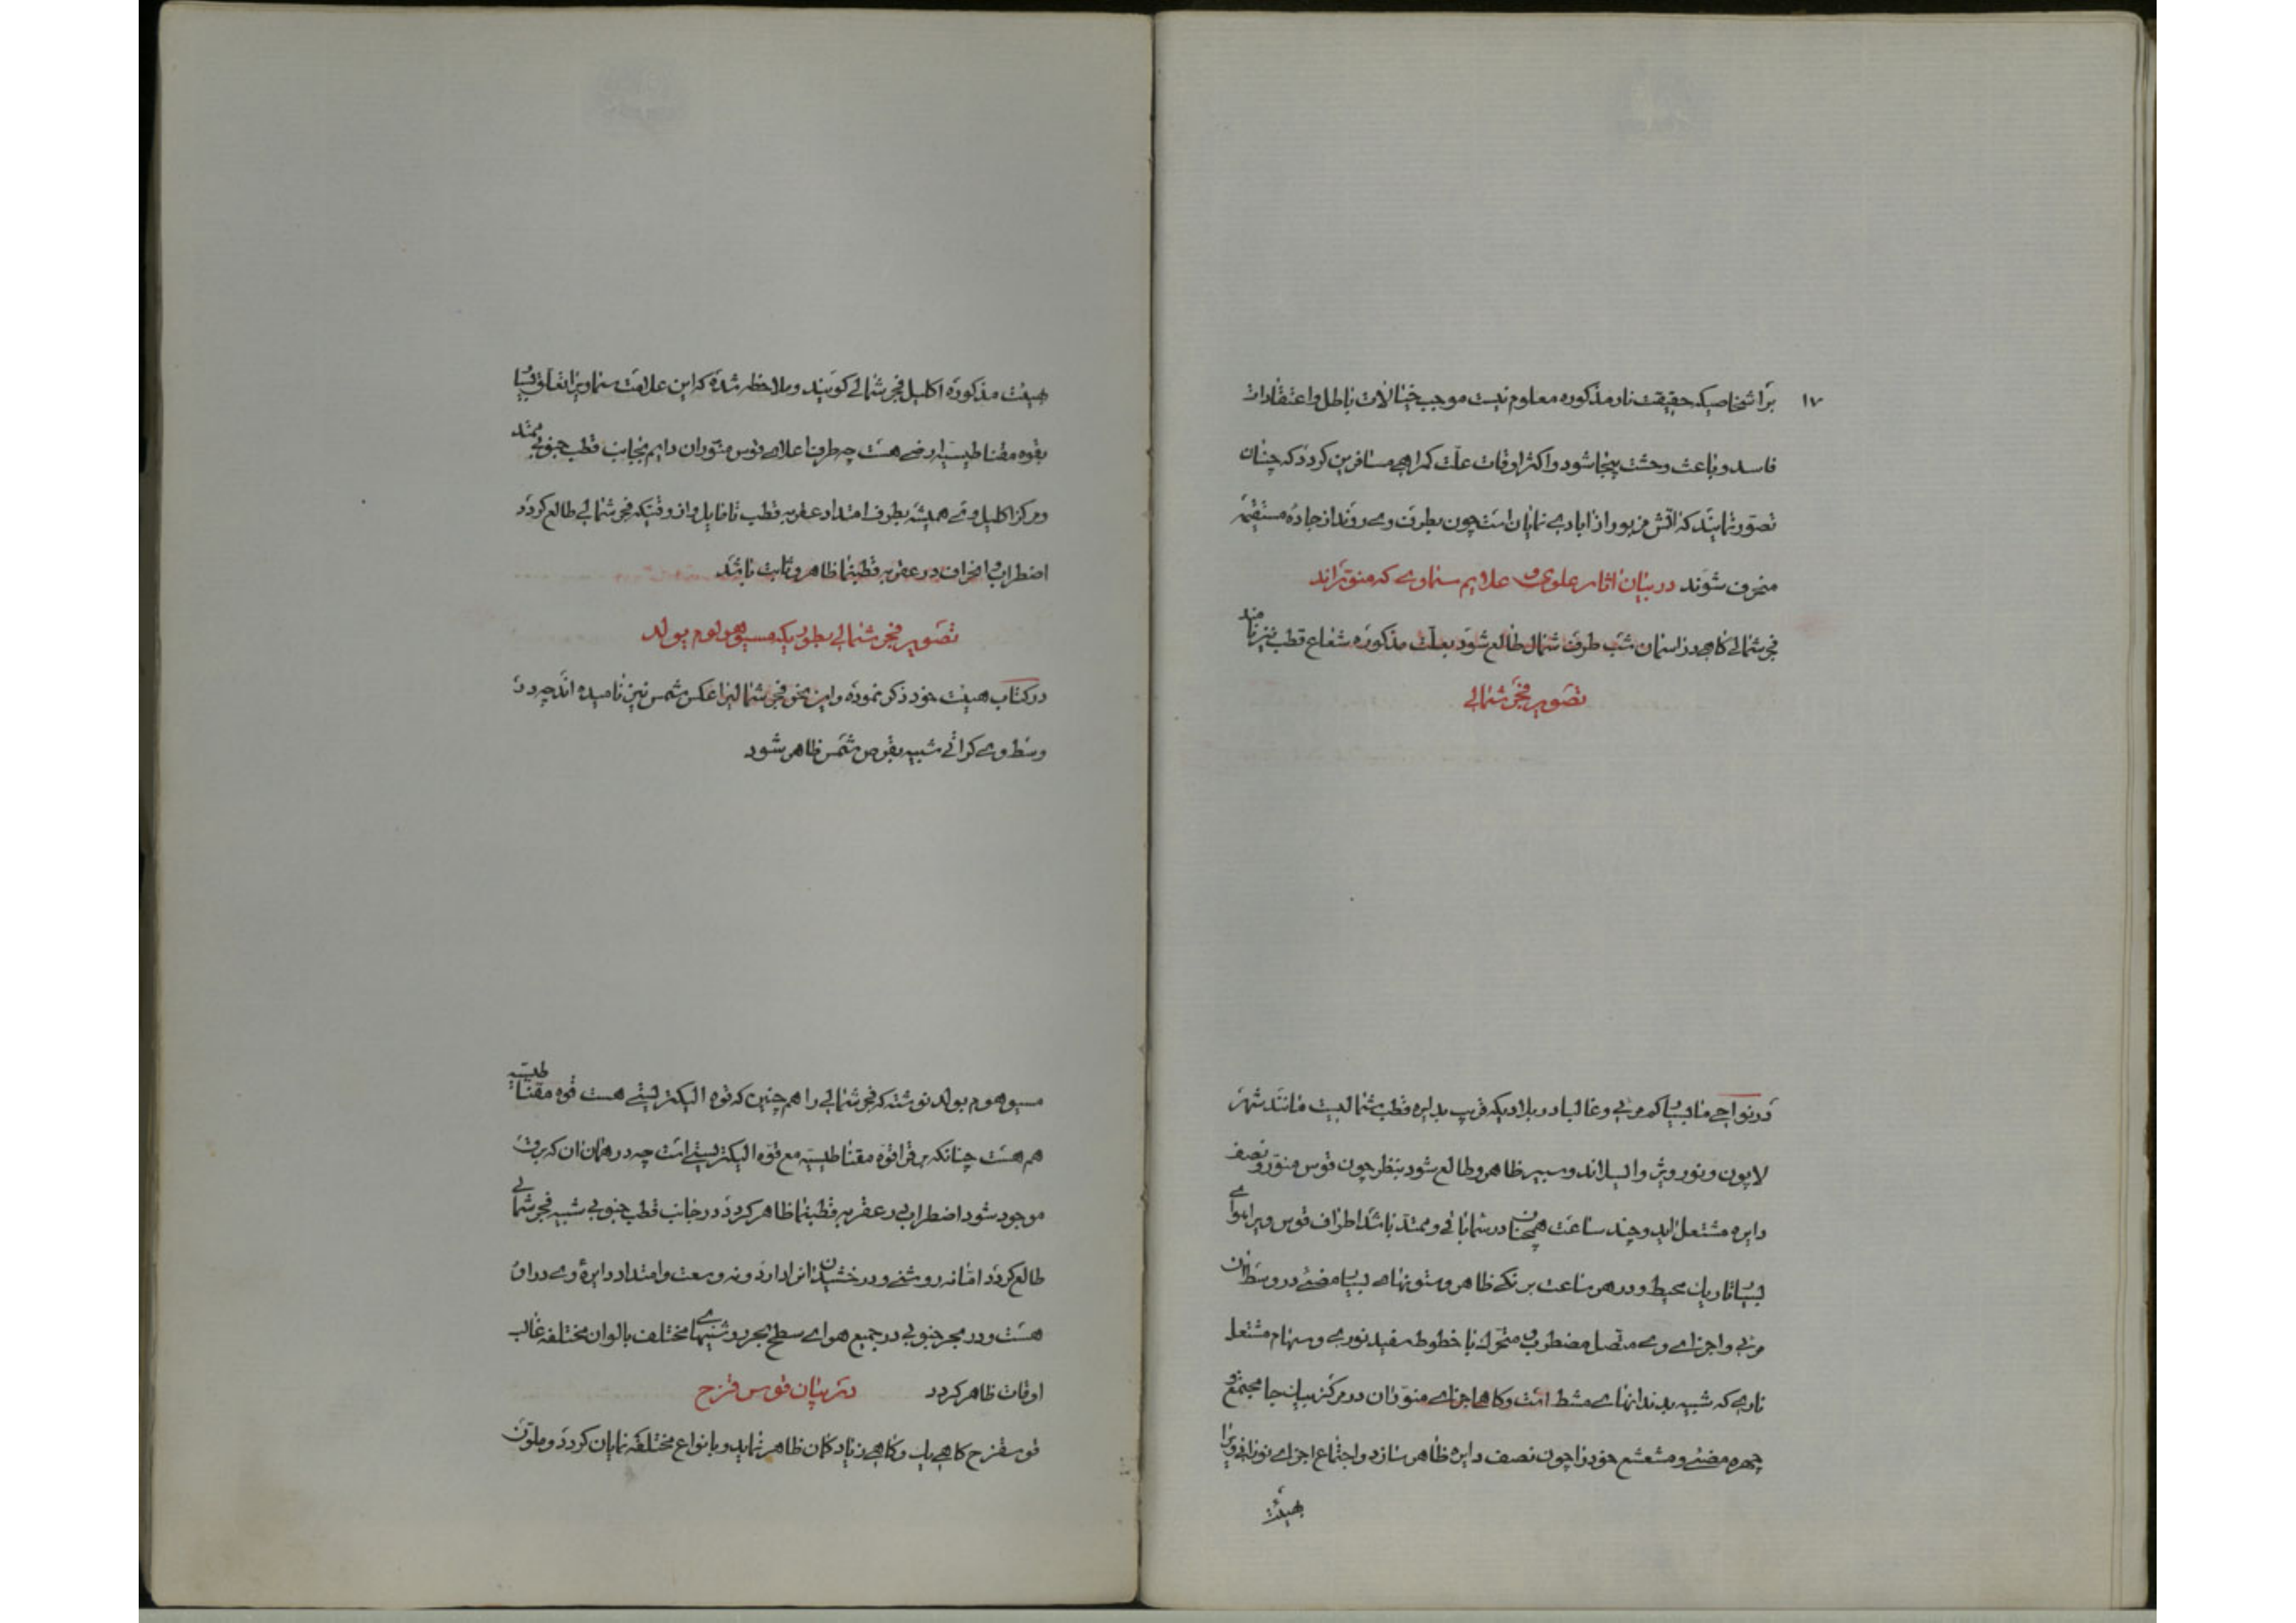 ۱۷
برا شخاصیکه حقیقت نار مذکوره معلوم نیست موجب خیالات باطل و اعتقادات
فاسد و باعث وحشت بیجا شود و اکثر اوقات علّت کمراهی مسافرین کردد که چنان
تصوّر نمایند که اتش مزبور از ابادی نمایان است چون بطرف وی روند از جاده مستقیمه
منحرف شوند در بیان اثار علوی و علایم سماوی که منوّراند
فجر شمالی کاهی در اسمان شب طرف شمال طالع شود بعلّت مذکوره شعاع قطب نیز نامند
تصویر فجر شمالی
در نواحی ما بسیا کم مرئی و غالبا در بلادیکه قریب بدایره قطب شمالیست مانند شهر
لاپون و نورویژ و ایسلاند و سیبر ظاهر و طالع شود بنظر چون قوس منوّر و نصف
دایره مشتعل اید و چند ساعت همچنان در شما باقی و ممتد باشد اطراف قوس ویرا هوای
بسیا تاریک محیط و در هر ساعت برنکی ظاهر و ستونهای بسیا مضئ در وسط ان
مرئی و اجزای وی متصل مضطرب و متحرک با خطوط سفید نوری و سهام مشتعل
ناری که شبیه بدندانهای مشط است و کاها جزای منوّر ان در مرکز بیکجا مجتمع و
چهره مضئ و مشعشع خود را چون نصف دایره ظاهر سازد و اجتماع اجزای نورانی ویرا
بهیئت
هیئت مذکوره اکلیل فجر شمالی کویند و ملاحظه شده که این علامت سماویرا تعلق بسیا
بقوه مقناطیسیه ارضی هست چه طرف اعلای قوس منوّر ان دایم بجانب قطب جنوبی ممتد
و مرکز اکلیل وی همیشه بطرف امتداد عقربه قطب نما مایل و از وقتیکه فجر شمالی طالع کردد
اضطراب و انحراف در عقربه قطبنما ظاهر و ثابت باشد
تصویر فجر شمالی بطوریکه مسیو هوم بولد
در کتاب هیئت خود ذکر نموده و این نحو فجر شمالیرا عکس شمس نیز نامیده اند چه در
وسط وی کراتی شبیه بقرص شمس ظاهر شود
مسیو هوم بولد نوشته که فجر شمالی را هم چنین که قوه الیکتریسیتی هست قوه مقناطیسیه
هم هست چنانکه برق را قوه مقناطیسیه مع قوه الیکتریسیتی است چه در همان ان که برق
موجود شود اضطرابی در عقربه قطبنما ظاهر کردد در جانب قطب جنوبی شبیه فجر شمالی
طالع کردد امّا نه روشنی و درخشیدن انرا دارد و نه وسعت و امتداد دایرهٔ وی در ان
هست و در بحر جنوبی در جمیع هوای سطح بحر روشنیهای مختلف بالوان مختلفه غالب
اوقات ظاهر کردد در بیان قوس قزح
قوسقزح کاهی یک و کاهی زیاد کان ظاهر نماید و بانواع مختلفه نمایان کردد و ملوّن